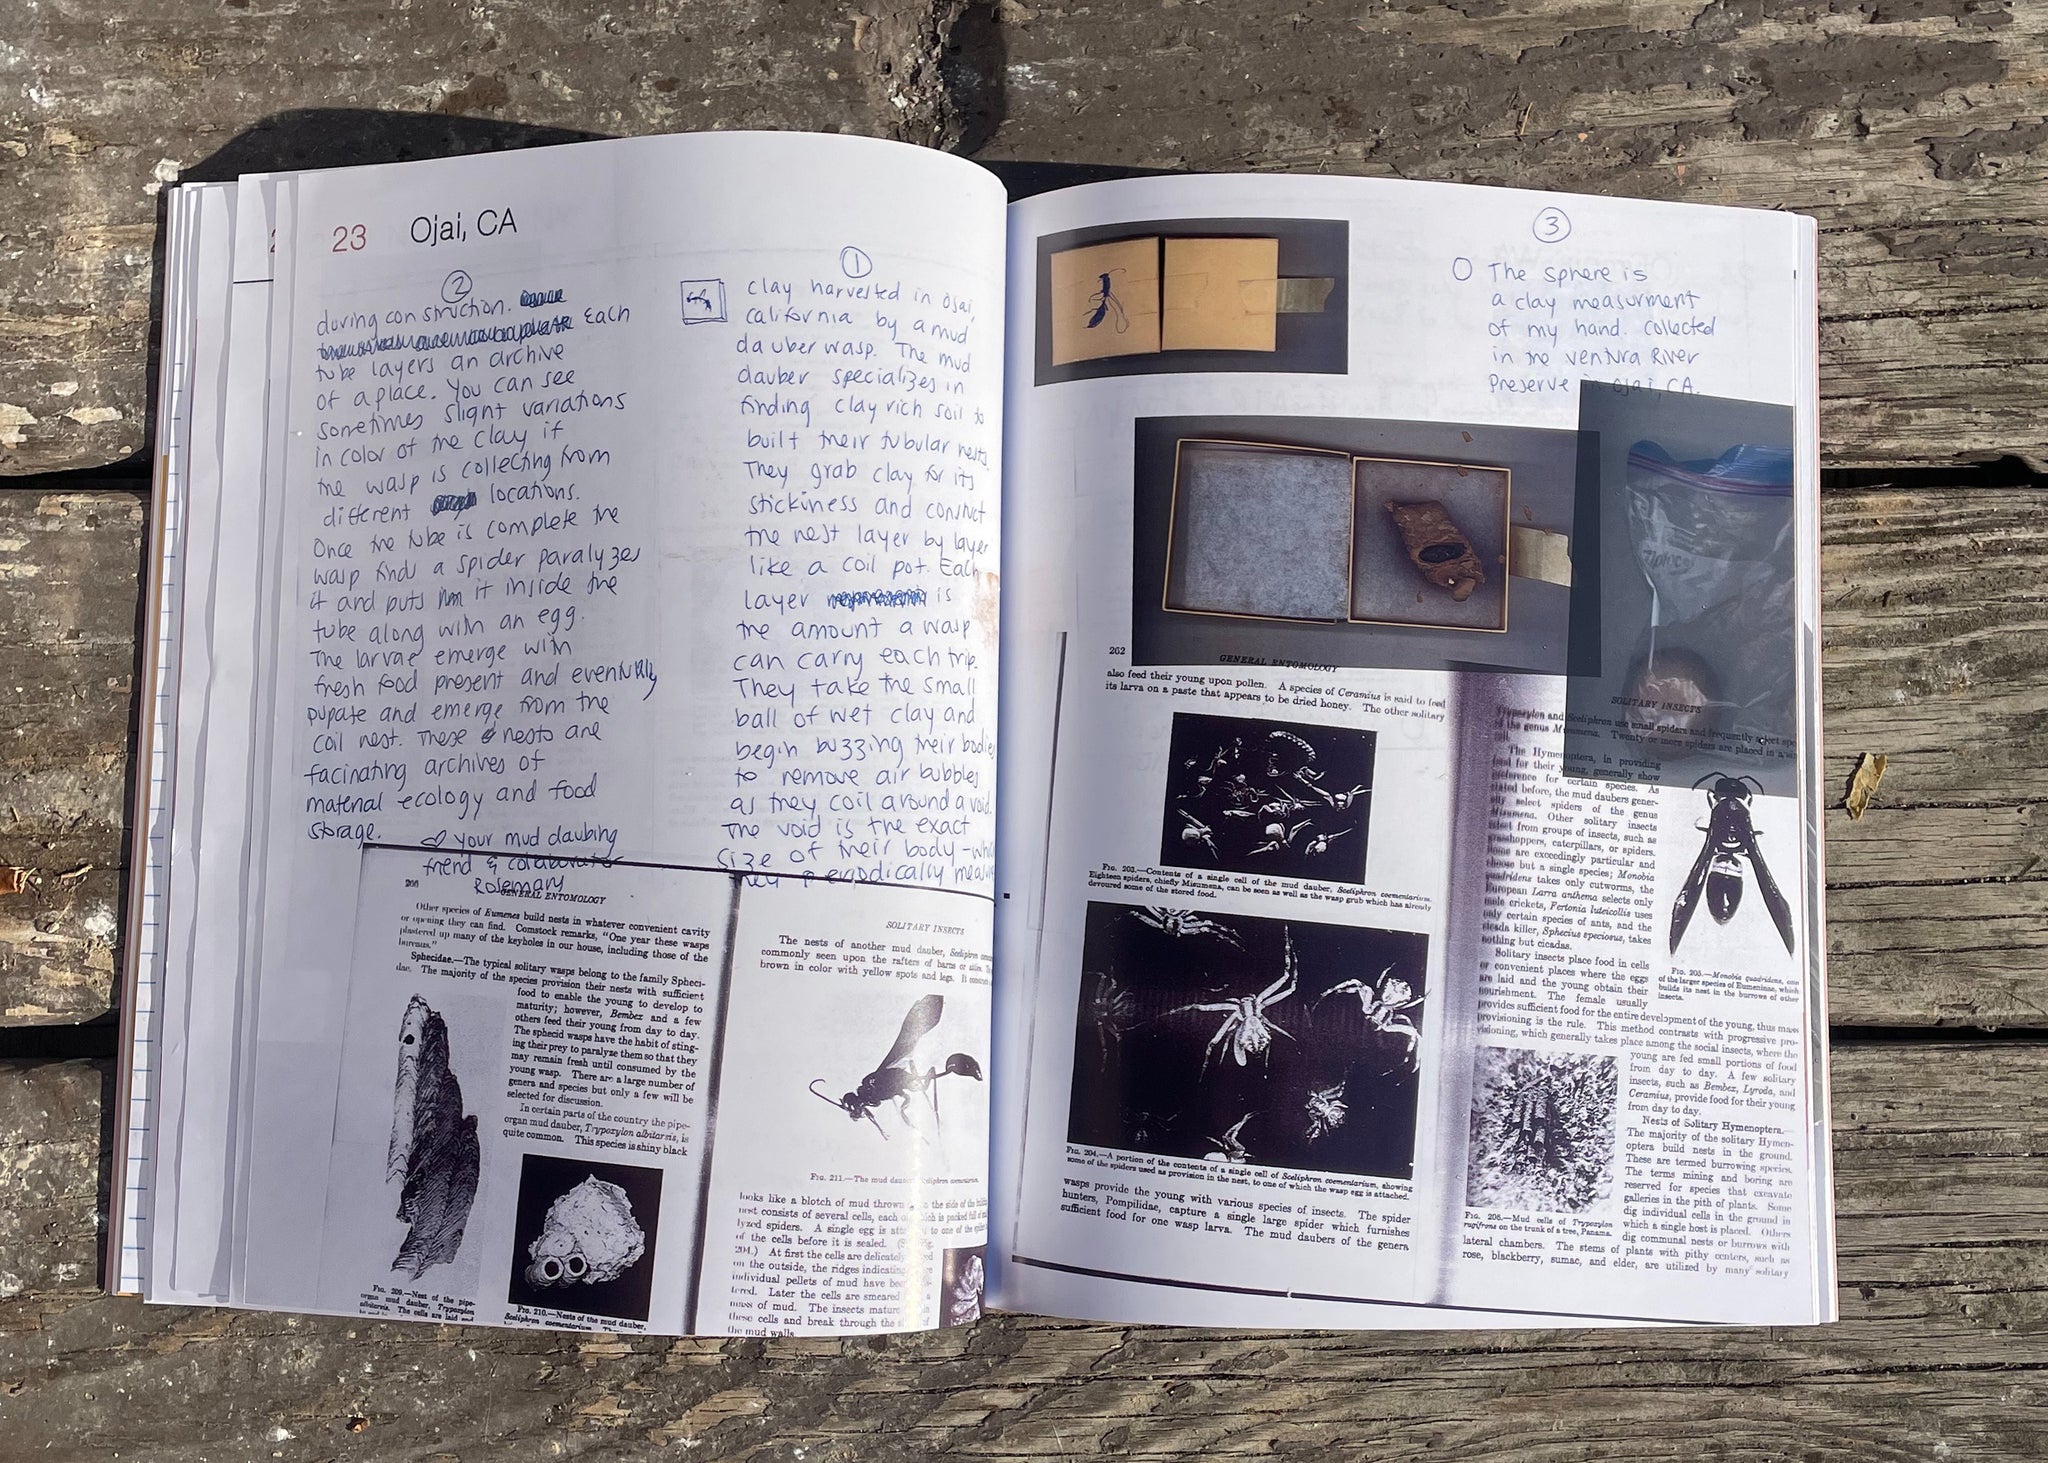 23 Ojai, CA
①
clay harvested in Ojai,
california by a mud
dauber wasp. The mud
dauber specializes in
finding clay rich soil to
built their tubular nests.
They grab clay for its
stickiness and constuct
the nest layer by layer
like a coil pot. Each
layer is
the amount a wasp
can carry each trip.
They take the small
ball of wet clay and
begin buzzing their bodies
to remove air bubbles
as they coil around a void.
The void is the exact
size of their body -
they periodically measure
②
during construction.
Each
tube layers an archive
of a place. You can see
sometimes slight variations
in color of the clay if
the wasp is collecting from
different locations.
Once the tube is complete the
wasp finds a spider paralyzes
it and puts it inside the
tube along with an egg.
The larvae emerge with
fresh food present and eventually
pupate and emerge from the
coil nest. These nests are
facinating archives of
material ecology and food
storage.
♡ your mud daubing
friend & collaborator
Rosemary
GENERAL ENTOMOLOGY
Other species of Eumenes build nests in whatever convenient cavity
or opening they can find. Comstock remarks, "One year these wasps
plastered up many of the keyholes in our house, including those of the
bureaus."
Sphecidae.—The typical solitary wasps belong to the family Spheci-
dae. The majority of the species provision their nests with sufficient
food to enable the young to develop to
maturity; however, Bembex and a few
others feed their young from day to day.
The sphecid wasps have the habit of sting-
ing their prey to paralyze them so that they
may remain fresh until consumed by the
young wasp. There are a large number of
genera and species but only a few will be
selected for discussion.
In certain parts of the country the pipe-
organ mud dauber, Trypoxylon albitarsis, is
quite common. This species is shiny black
FIG. 209.—Nest of the pipe-
organ mud dauber, Trypoxylon
albitarsis. The cells are laid and
FIG. 210.—Nests of the mud dauber,
Sceliphron cementarium.
SOLITARY INSECTS
The nests of another mud dauber, Sceliphron
commonly seen upon the rafters of barns or
brown in color with yellow spots and legs. It
FIG. 211.—The mud dauber Sceliphron cementarium.
looks like a blotch of mud thrown to the side of the
nest consists of several cells, each of which is packed full of
lyzed spiders. A single egg is to one of the
of the cells before it is sealed.
204.) At first the cells are delicately
on the outside, the ridges indicating
individual pellets of mud have been
tered. Later the cells are smeared a
mass of mud. The insects mature in
these cells and break through the of
the mud walls.
③
The sphere is
a clay measurment
of my hand. collected
in the Ventura River
Preserve in Ojai, CA.
Ziploc
262
GENERAL ENTOMOLOGY
also feed their young upon pollen. A species of Ceramius is said to feed
its larva on a paste that appears to be dried honey. The other solitary
FIG. 203.—Contents of a single cell of the mud dauber, Sceliphron cementarium.
Eighteen spiders, chiefly Misumena, can be seen as well as the wasp grub which has already
devoured some of the stored food.
FIG. 204.—A portion of the contents of a single cell of Sceliphron cementarium, showing
some of the spiders used as provision in the nest, to one of which the wasp egg is attached.
wasps provide the young with various species of insects. The spider
hunters, Pompilidae, capture a single large spider which furnishes
sufficient food for one wasp larva. The mud daubers of the genera
SOLITARY INSECTS
Trypoxylon and Sceliphron use small spiders and frequently select
of the genus Misumena. Twenty or more spiders are placed in a
cell.
The Hymenoptera, in providing
food for their young, generally show
preference for certain species. As
stated before, the mud daubers gener-
ally select spiders of the genus
Misumena. Other solitary insects
select from groups of insects, such as
grasshoppers, caterpillars, or spiders.
Some are exceedingly particular and
choose but a single species; Monobia
quadridens takes only cutworms, the
European Larra anthema selects only
mole crickets, Fertonia luteicollis uses
only certain species of ants, and the
cicada killer, Sphecius speciosus, takes
nothing but cicadas.
Solitary insects place food in cells
or convenient places where the eggs
are laid and the young obtain their
nourishment. The female usually
provides sufficient food for the entire development of the young, thus mass
provisioning is the rule. This method contrasts with progressive pro-
visioning, which generally takes place among the social insects, where the
young are fed small portions of food
from day to day. A few solitary
insects, such as Bembex, Lyroda, and
Ceramius, provide food for their young
from day to day.
Nests of Solitary Hymenoptera.—
The majority of the solitary Hymen-
optera build nests in the ground.
These are termed burrowing species.
The terms mining and boring are
reserved for species that excavate
galleries in the pith of plants. Some
dig individual cells in the ground in
which a single host is placed. Others
dig communal nests or burrows with
lateral chambers. The stems of plants with pithy centers, such as
rose, blackberry, sumac, and elder, are utilized by many solitary
FIG. 205.—Monobia quadridens, one
of the larger species of Eumeninae, which
builds its nest in the burrows of other
insects.
FIG. 206.—Mud cells of Trypoxylon
rugifrons on the trunk of a tree, Panama.